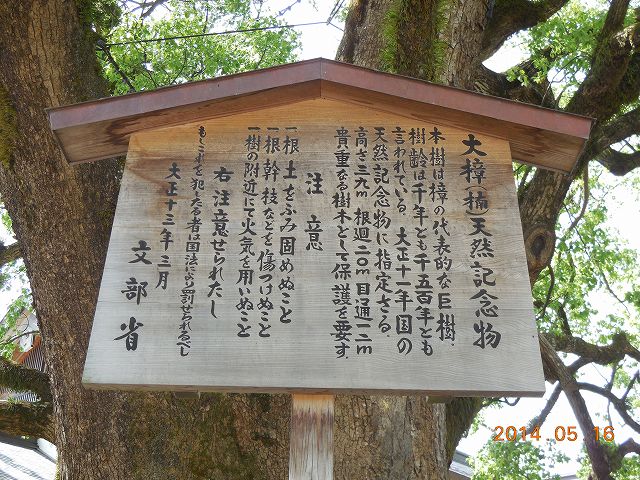 大樟(楠)天然記念物
本樹は樟の代表的な巨樹、
樹齢は千年とも千五百年とも
言われている。大正十一年国の
天然記念物に指定さる。
高さ三九m根廻二〇m目通一二m
貴重なる樹木として保護を要す。
注意
一根土をふみ固めぬこと
一根幹枝などを傷つけぬこと
一樹の附近にて火気を用いぬこと
右注意せられたし
もしこれを犯したる者は国法により罰せられるべし
大正十三年三月
文部省
2014 05 16